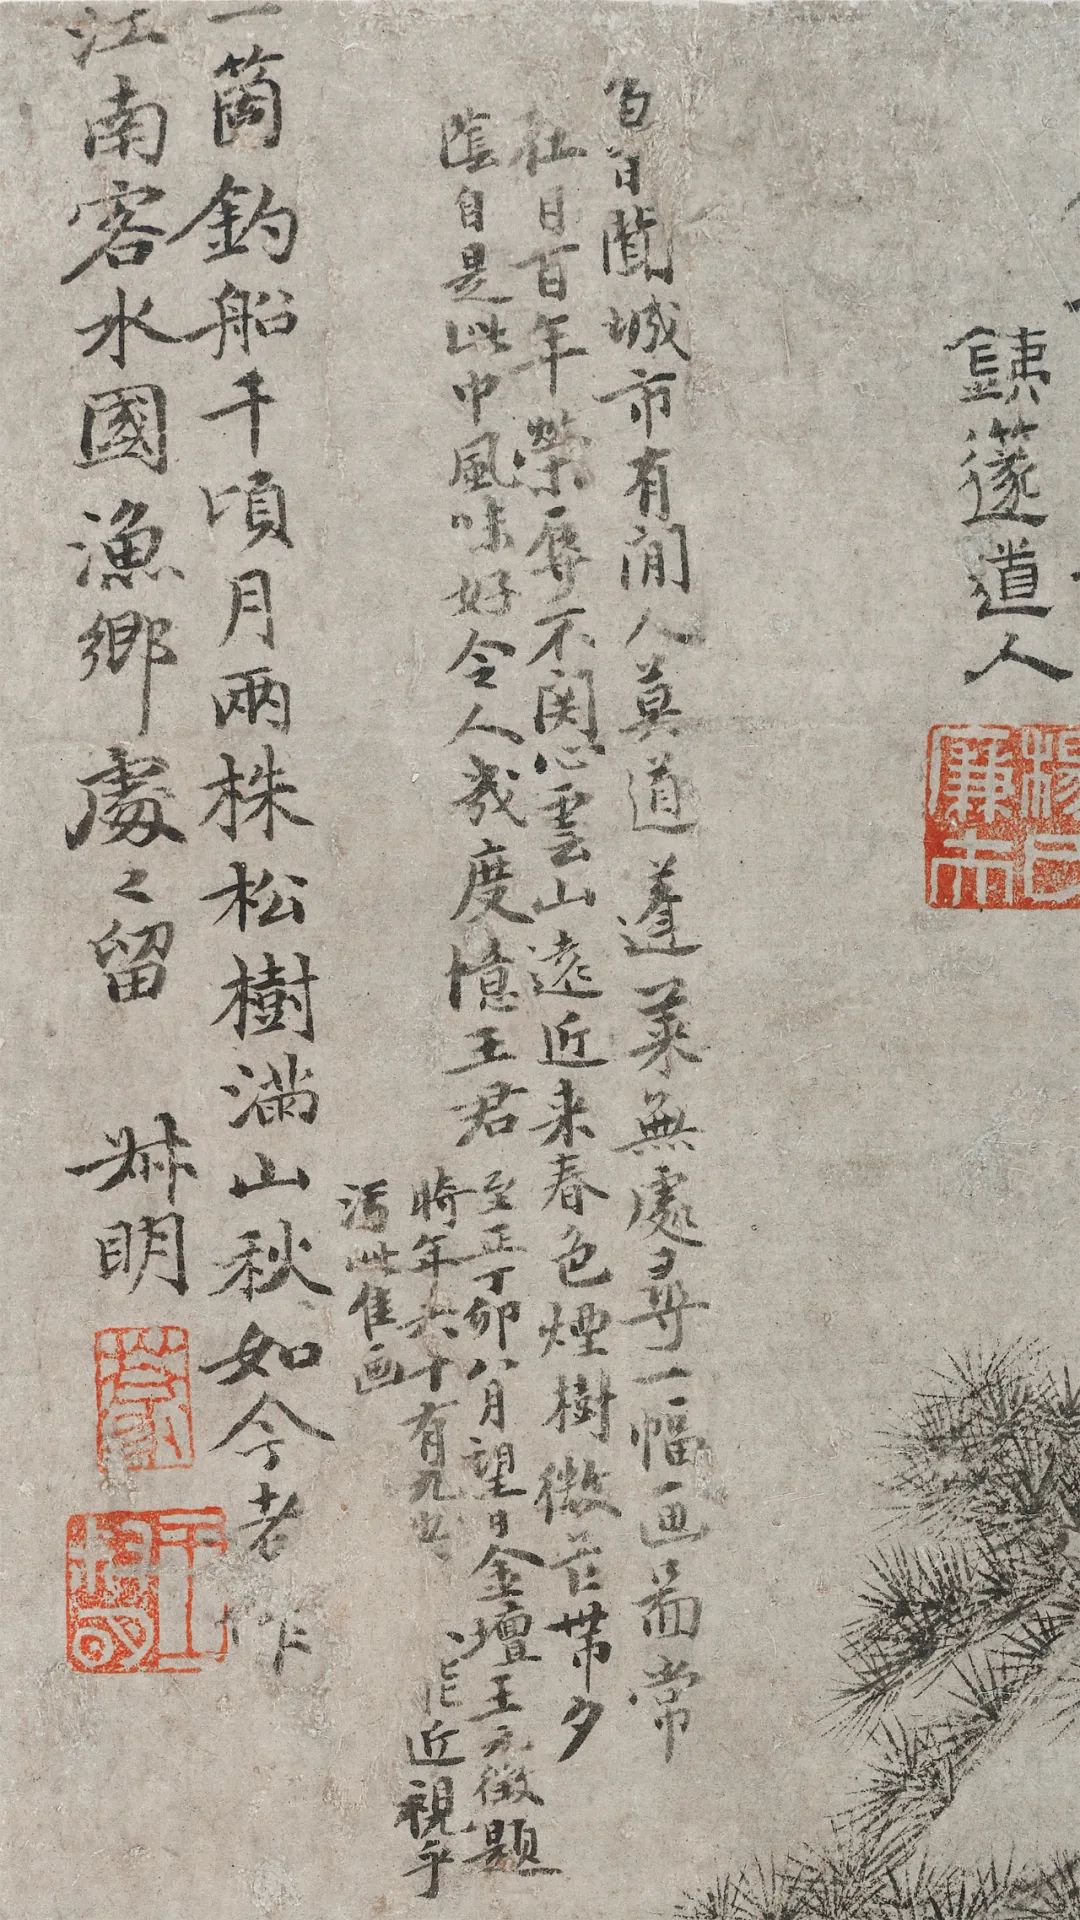 銕篴道人
楊廉夫印
白日閑城市有閒人莫道蓬萊無處尋一幅画啚常
在日百年榮辱不関心雲山遠近来春色煙樹微茫帶夕
陰自是此中風味好令人幾度憶王君
至正丁卯八月望日金壇王元徵題
時年六十有九
近視乎
此佳画
一箇釣船千頃月兩株松樹滿山秋如今老作
江南客水國漁鄉處〻留
叔明